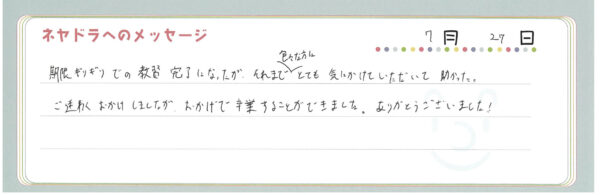 ネヤドラへのメッセージ
7月 29日
期限ギリギリでの教習完了になったが、それまで色々な方にとても気にかけていただいて助かった。
ご迷わくおかけしましたが、おかげで卒業することができました。ありがとうございました!